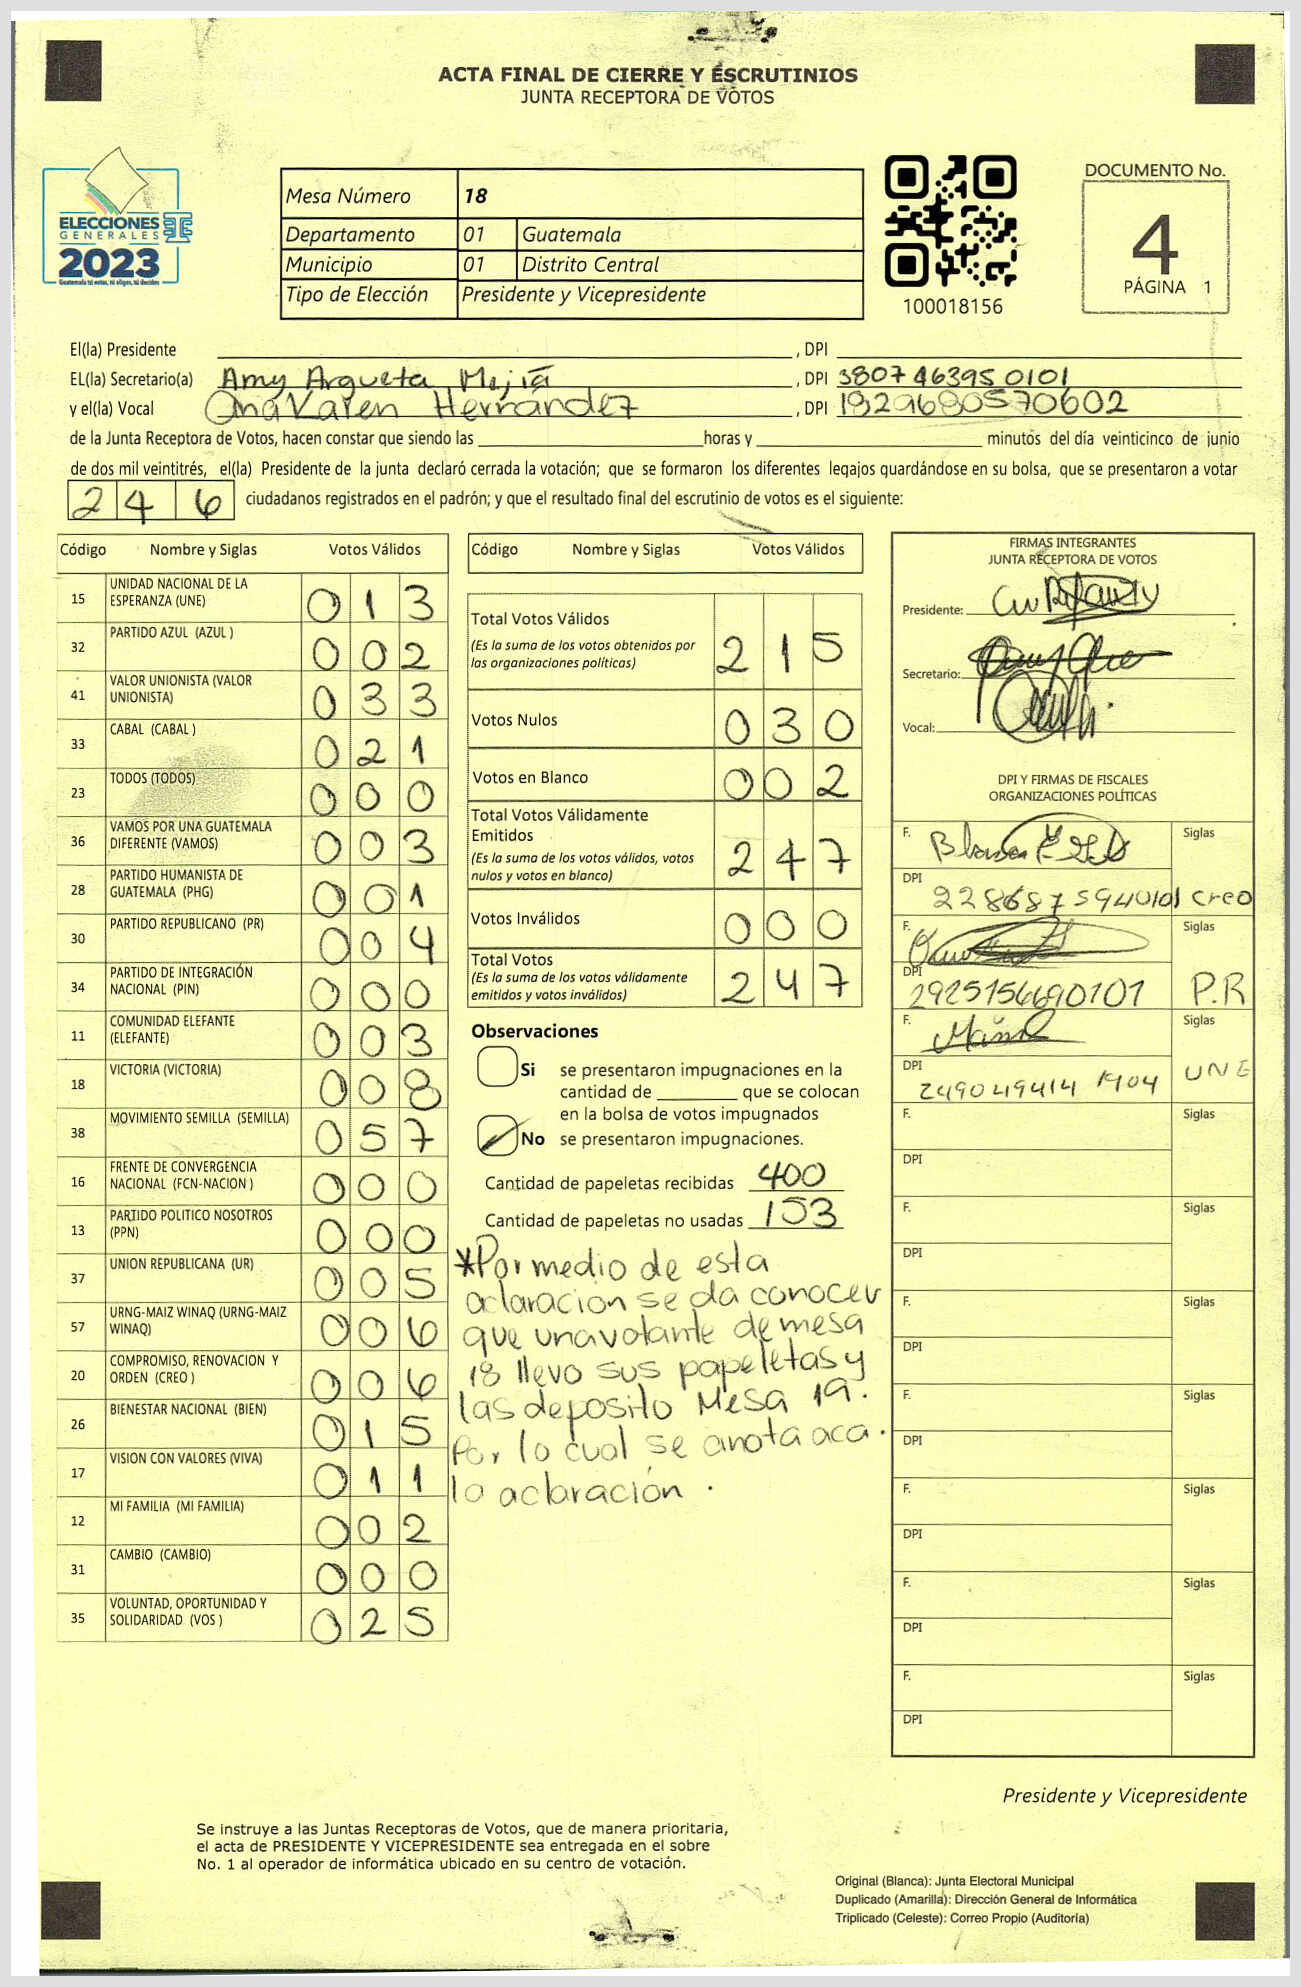 ACTA FINAL DE CIERRE Y ESCRUTINIOS
JUNTA RECEPTORA DE VOTOS
ELECCIONES
GENERALES
2023
Guatemala tú votas, tú eliges, tú decides
Mesa Número 18
Departamento 01 Guatemala
Municipio 01 Distrito Central
Tipo de Elección Presidente y Vicepresidente
100018156
DOCUMENTO No.
4
PÁGINA 1
El(la) Presidente , DPI
EL(la) Secretario(a) Amy Argueta Mejía , DPI 3807463950101
y el(la) Vocal Ana Karen Hernández , DPI 1829680570602
de la Junta Receptora de Votos, hacen constar que siendo las horas y minutos del día veinticinco de junio
de dos mil veintitrés, el(la) Presidente de la junta declaró cerrada la votación; que se formaron los diferentes legajos guardándose en su bolsa, que se presentaron a votar
246 ciudadanos registrados en el padrón; y que el resultado final del escrutinio de votos es el siguiente:
Código Nombre y Siglas Votos Válidos
15 UNIDAD NACIONAL DE LA ESPERANZA (UNE) 013
32 PARTIDO AZUL (AZUL ) 002
41 VALOR UNIONISTA (VALOR UNIONISTA) 033
33 CABAL (CABAL ) 021
23 TODOS (TODOS) 000
36 VAMOS POR UNA GUATEMALA DIFERENTE (VAMOS) 003
28 PARTIDO HUMANISTA DE GUATEMALA (PHG) 001
30 PARTIDO REPUBLICANO (PR) 004
34 PARTIDO DE INTEGRACIÓN NACIONAL (PIN) 000
11 COMUNIDAD ELEFANTE (ELEFANTE) 003
18 VICTORIA (VICTORIA) 008
38 MOVIMIENTO SEMILLA (SEMILLA) 057
16 FRENTE DE CONVERGENCIA NACIONAL (FCN-NACION ) 000
13 PARTIDO POLITICO NOSOTROS (PPN) 000
37 UNION REPUBLICANA (UR) 005
57 URNG-MAIZ WINAQ (URNG-MAIZ WINAQ) 006
20 COMPROMISO, RENOVACION Y ORDEN (CREO ) 006
26 BIENESTAR NACIONAL (BIEN) 015
17 VISION CON VALORES (VIVA) 011
12 MI FAMILIA (MI FAMILIA) 002
31 CAMBIO (CAMBIO) 000
35 VOLUNTAD, OPORTUNIDAD Y SOLIDARIDAD (VOS ) 025
Código Nombre y Siglas Votos Válidos
Total Votos Válidos 215
(Es la suma de los votos obtenidos por
las organizaciones políticas)
Votos Nulos 030
Votos en Blanco 002
Total Votos Válidamente
Emitidos 247
(Es la suma de los votos válidos, votos
nulos y votos en blanco)
Votos Inválidos 000
Total Votos 247
(Es la suma de los votos válidamente
emitidos y votos inválidos)
Observaciones
Si se presentaron impugnaciones en la
cantidad de que se colocan
en la bolsa de votos impugnados
No se presentaron impugnaciones.
Cantidad de papeletas recibidas 400
Cantidad de papeletas no usadas 153
*Por medio de esta
aclaracion se da conocer
que una votante de mesa
18 llevo sus papeletas y
las deposito Mesa 19.
Por lo cual se anota aca.
la aclaración.
FIRMAS INTEGRANTES
JUNTA RECEPTORA DE VOTOS
Presidente:
Secretario:
Vocal:
DPI Y FIRMAS DE FISCALES
ORGANIZACIONES POLÍTICAS
F. Siglas
DPI 2286875940101 Creo
F. Siglas
DPI 2925156690101 P.R
F. Siglas
DPI 2490494141904 UNE
F. Siglas
DPI
F. Siglas
DPI
F. Siglas
DPI
F. Siglas
DPI
F. Siglas
DPI
F. Siglas
DPI
F. Siglas
DPI
Presidente y Vicepresidente
Se instruye a las Juntas Receptoras de Votos, que de manera prioritaria,
el acta de PRESIDENTE Y VICEPRESIDENTE sea entregada en el sobre
No. 1 al operador de informática ubicado en su centro de votación.
Original (Blanca): Junta Electoral Municipal
Duplicado (Amarilla): Dirección General de Informática
Triplicado (Celeste): Correo Propio (Auditoría)